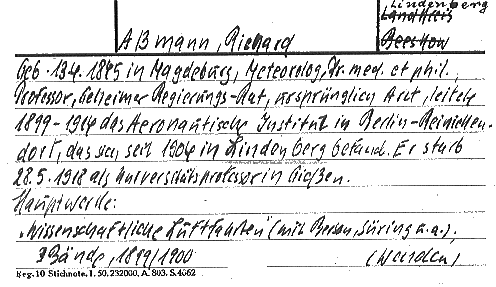 Lindenberg
Landkreis
Beeskow
Aßmann, Richard
Geb. 13.4. 1845 in Magdeburg, Meteorolog, Dr. med. et phil.,
Professor, Geheimer Regierungs-Rat, ursprünglich Arzt, leitete
1899-1914 das Aeronautische Institut in Berlin-Reinicken-
dorf, das sich seit 1904 in Lindenberg befand. Er starb
28.5.1918 als Universitätsprofessor in Gießen.
Hauptwerke:
"Wissenschaftliche Luftfahrten" (mit Berson, Süring u.a.),
3 Bände, 1899/1900
Reg. 10 Stichnote. I. 50. 232000. A. 803. S. 4662